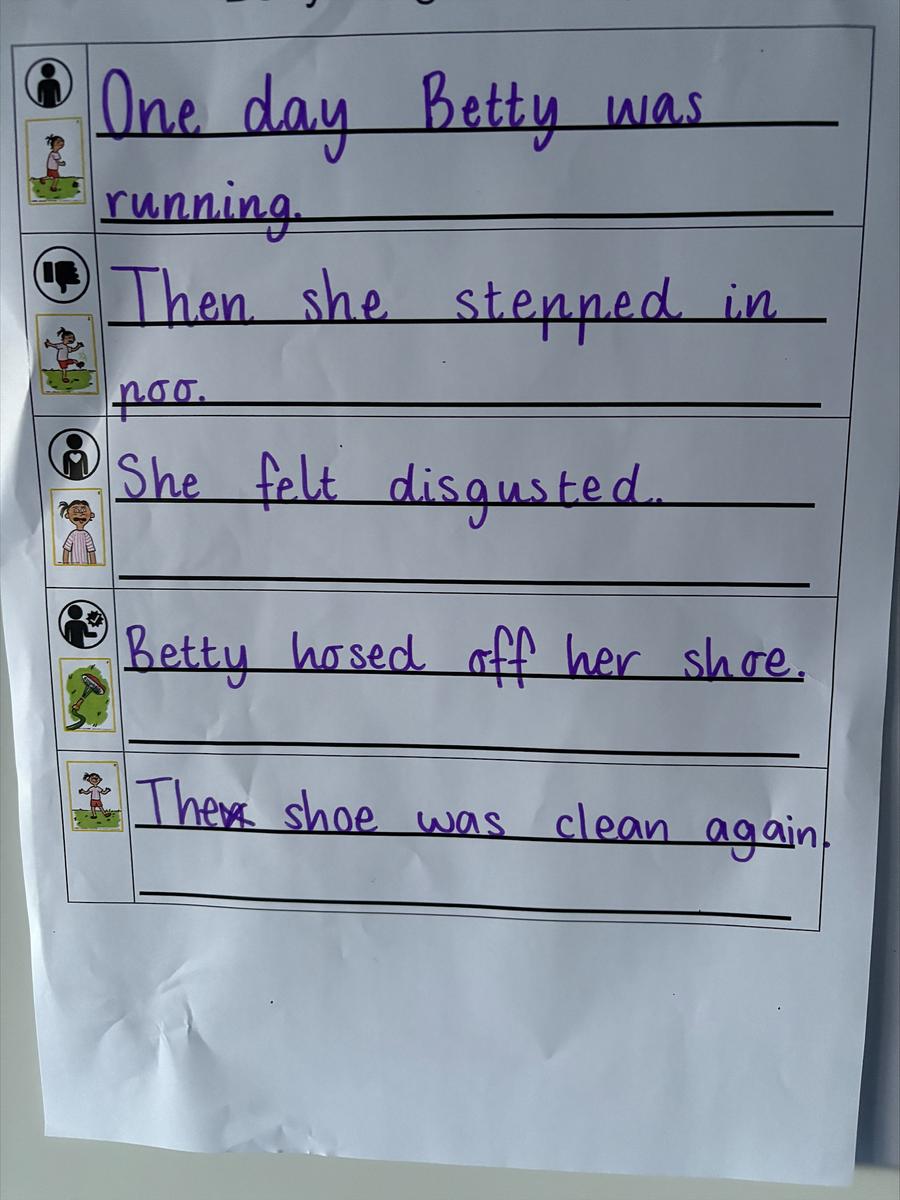 One day Betty was
running.
Then she stepped in
poo.
She felt disgusted.
Betty hosed off her shoe.
The shoe was clean again.